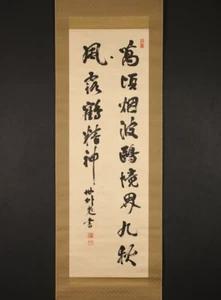 萬頃烟波鷗境界九秋
風露鶴精神